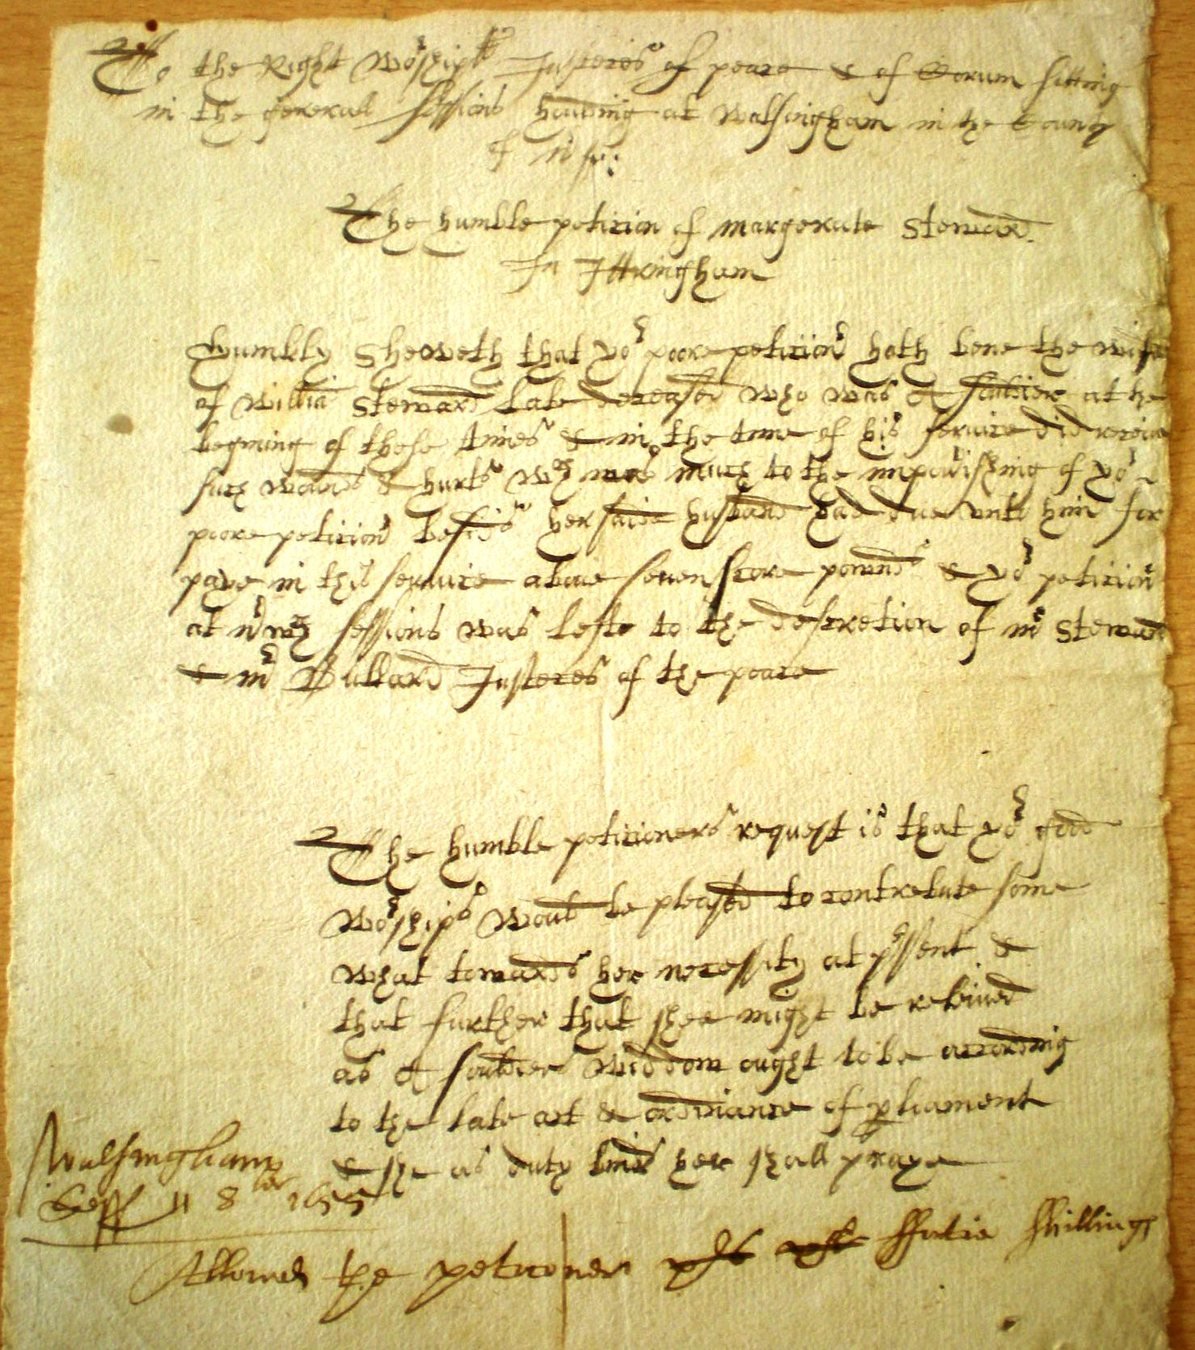 To the Right Wor:shipll Justeces of peace & of Corum sitting
in the generall sessions houlding at Walsingham in the County
of
The humble peticion of margerate Steward
In Ittringham
Humbly Sheweth that yor poore peticionr hath bene the wife
of Willia Steward late deceased who was A souldier at the
begining of these times & in the time of his service did receive
such wounds & hurts wch was much to the impovrishing of yor
poore peticionr besids her saide husband had due unto him for
paye in this service above seven score pownds & yor peticionr
at sessions was lefte to the descretion of mr Steward
& mr Bullard Justeces of the peace
The humble peticioners request is that yor good
Worships would be pleased to contrebute some
what towards her necessity at pressent &
that further that shee might be releived
as A souldiers widdow ought to be according
to the late act & ordinance of parliament
& she as duty binds her shall praye
Walsingham
Sess 11 8ber 1655
Allowed the peticoner ffortie shillings